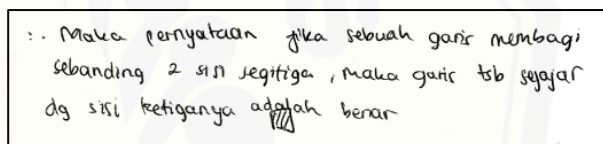 ∴ Maka pernyataan jika sebuah garis membagi
sebanding 2 sisi segitiga, maka garis tsb sejajar
dg sisi ketiganya adalah benar